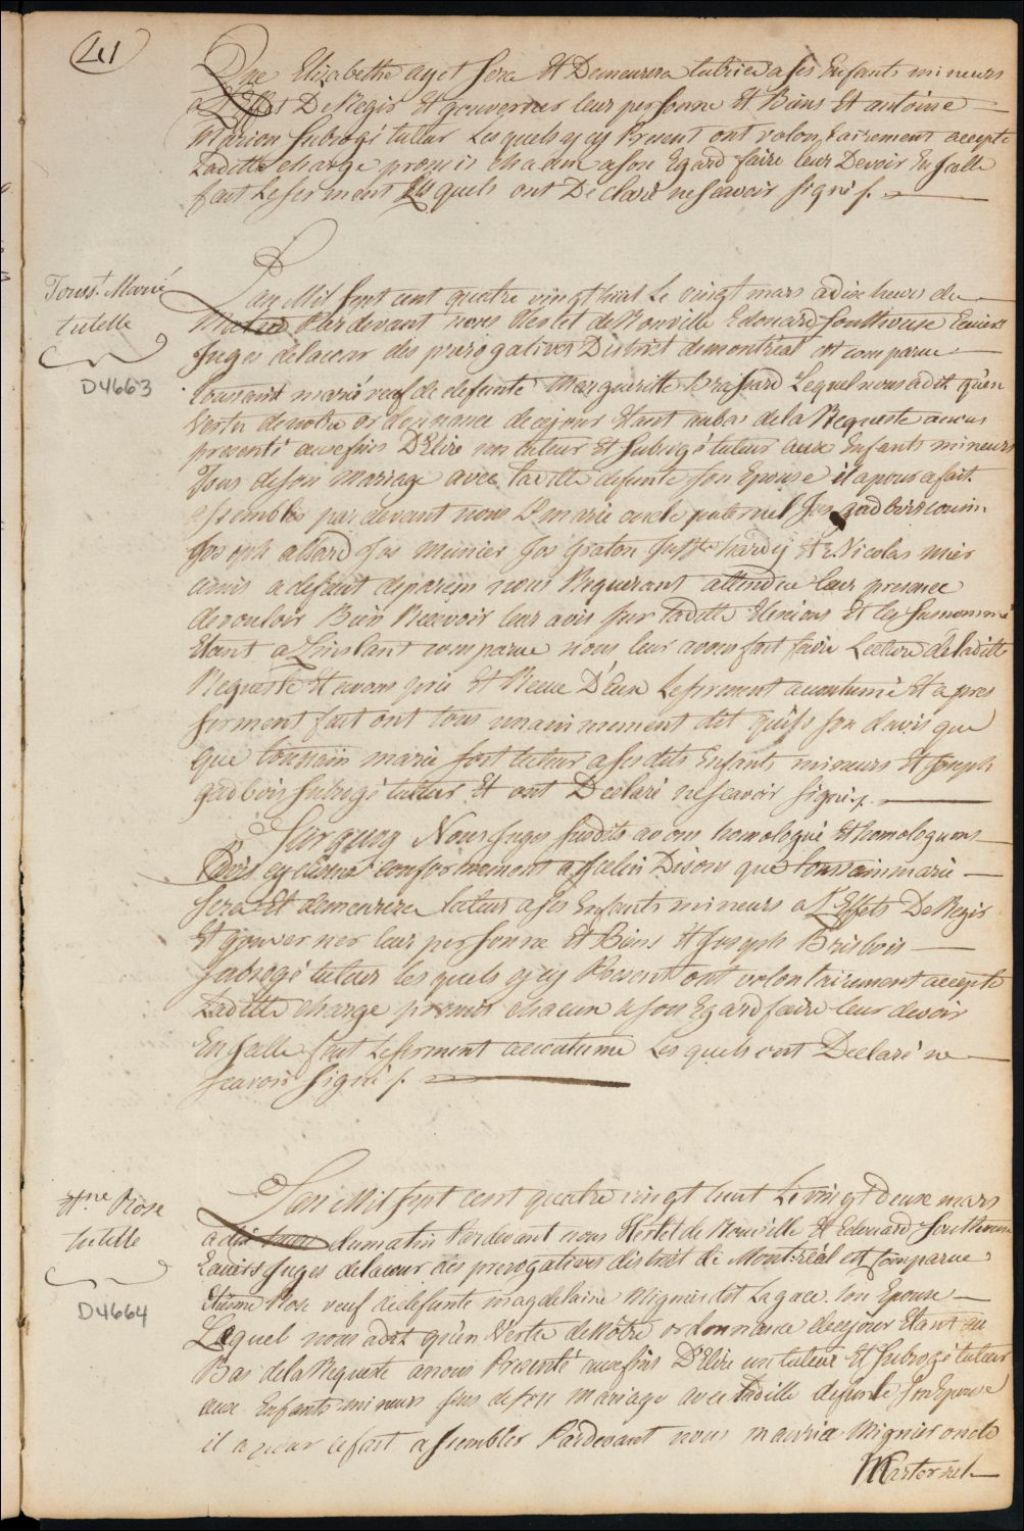 241
Que Elizabethe ayet sera Et Demeurera tutrice a ses Enfants mineurs
a L'Effet De Regir Et gouverner leur personne Et Biens Et antoine
Marion Subrogé tuteur Lesquels cy Present ont volontairement accepte
Laditte charge promis chacun a son Egard faire leur Devoir En Icelle
fait Le serment Lesquels ont Déclaré ne scavoir signé /.
Touss.t Marié
tutelle
D4663
L'an Mil Sept cent quatre vingt huit Le vingt mars a dix heures du
Matin Pardevant nous Hertel de Rouville Edouard Southouse Ecuiers
Juges de la cour des prerogatives District de montréal Est comparue
Toussaint marié veuf de defunte Margueritte Brassard Lequel nous a dit qu'en
Vertu de notre ordonnance de ce jour Etant au bas de la Requeste a nous
presenté aux fins D'Elire un tuteur Et Subrogé tuteur aux Enfants mineurs
Issus de son Mariage avec laditte defunte son Epouse il a pour ce fait
assemblés par devant nous marié oncle paternel Jos gadbois cousin
Joseph allard Jos munier Jos graton hardy Et Nicolas
amis a defaut de parens nous Requerant attendu leur presence
de vouloir Bien Recevoir leur avis sur laditte Elections Et les susnommé
Etant a L'instant comparue nous leur avons fait faire Lecture de laditte
Requeste Et avons pris Et Recue D'Eux Le serment accoutumé Et apres
serment fait ont tous unanimement dit qu'ils son d'avis que
que toussain marié soit tuteur a ses dits Enfants mineurs Et Joseph
gadbois subrogé tuteur Et ont Déclaré ne scavoir signé /.
Sur quoy Nous Juges susdits avons homologué Et homologuons
L'avis cy dessus conformement a Icelui Disons que toussain marié
sera Et demeurera tuteur a ses Enfants mineurs a L'Effets De Regir
Et gouverner leur personne Et Biens Et Joseph Brisbois
subrogé tuteur les quels cy Present ont volontairement accepte
Laditte charge promis chacun a son Egard faire leur devoir
En Icelle fait Le serment accoutumé Lesquels ont Declaré ne
scavoir signé /.
Et.ne Rose
tutelle
D4664
L'an Mil sept cent quatre vingt huit Le vingt deux mars
a dix heures du matin Pardevant nous Hertel de Rouville Et Edouard Southouse
Ecuiers Juges de la cour des prerogatives district de Montréal est Comparue
Etienne Rose veuf de defunte magdelaine Mignier dit Lagace son Epouse
Lequel nous a dit qu'en Vertu de Nôtre ordonnance de ce jour Etant au
Bas de la Requeste a nous Presenté aux fins D'Elire un tuteur Et Subrogé tuteur
aux Enfants mineurs Issus de son Mariage avec laditte defunte son Epouse
il a pour ce fait assembler Pardevant nous maurice Mignier oncle
Maternel